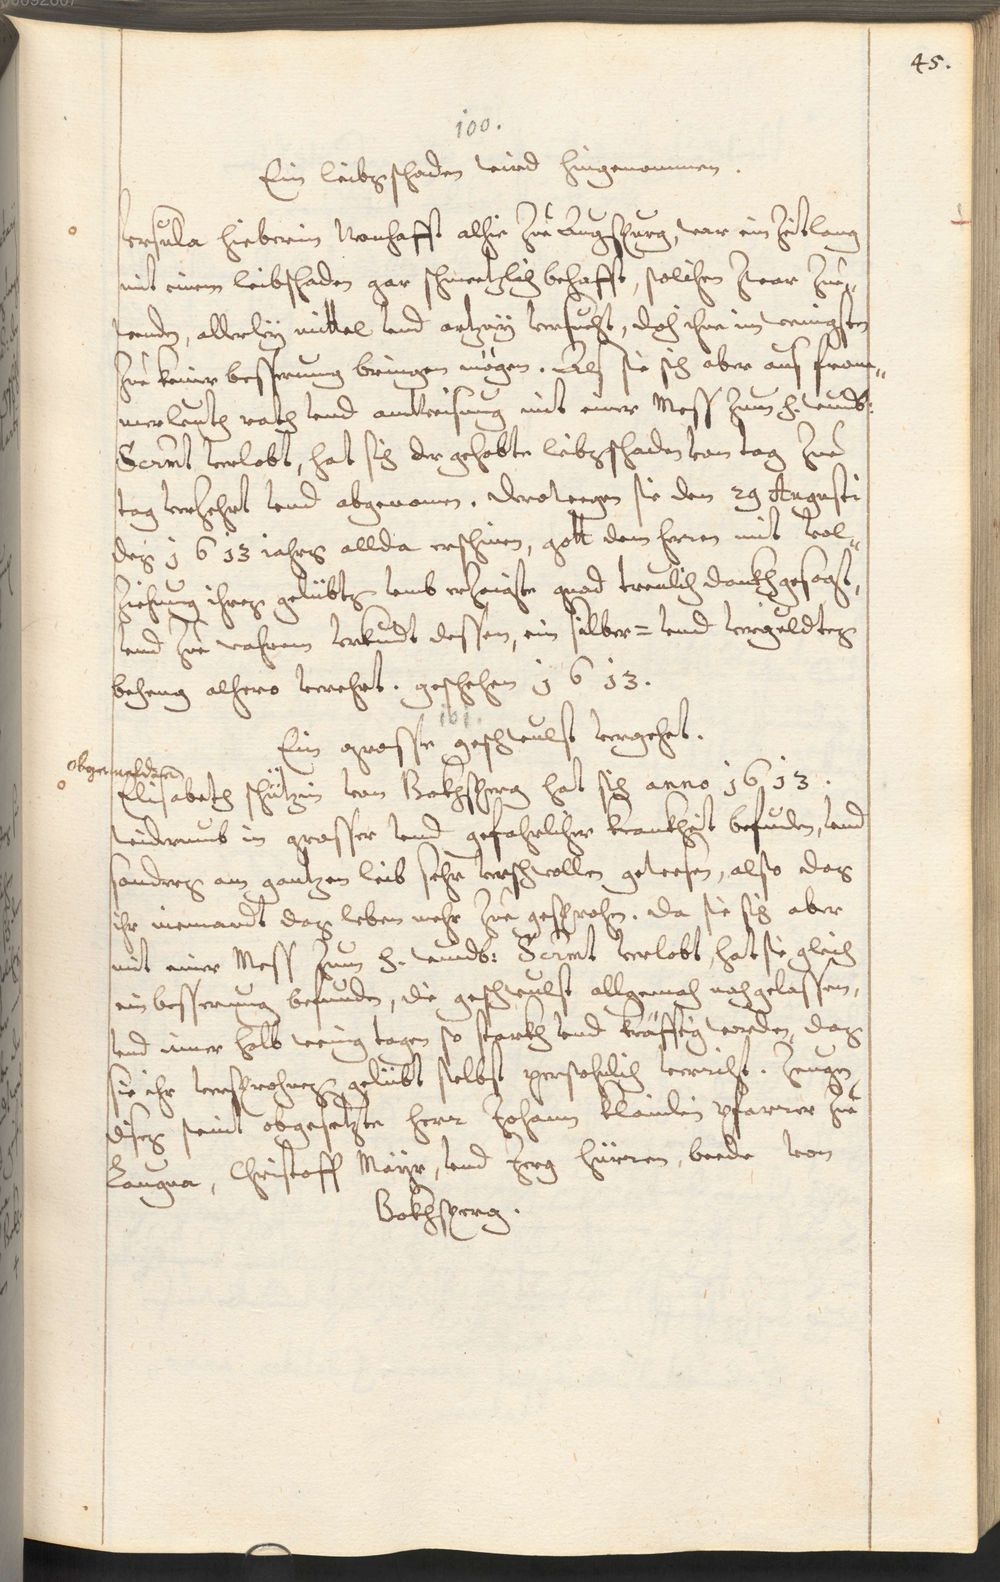 45.
100.
Ein leibsschaden wird hingenommen.
Vrsula Hieberin wonhafft alhie zů Augspurg, war ein zeitlang
mit einem leibschaden gar schmertzlich behafft, solchen zwar zů„
wenden, allerleÿ mittel vnd artzneÿ versucht, doch ihn im wenigsten
zů keiner besserung bringen mögen. Als sie sich aber aus from„
mer leuth rath vnd anweisung mit einer Mess zum h. wundb:
Scrmt verlobt, hat sich der gehabte leibsschaden von tag zů
tag verzehrt vnd abgenomen. Derowegen sie den 29 Augusti
des 1613 iahrs allda erschinen, gott dem herren mit vol„
ziehung ihres gelübts vmb erzeigte gnad treulich danckh gesagt,
vnd zů wahrem vrkundt dessen, ein silber= vnd vergůldtes
beheng alhero verehrt. geschehen 1613.
101.
Ein grosse geschwulst vergehet.
obgemeldte
Elisabeth schützin von Bokhsperg hat sich anno 1613.
widerumb in grosser vnd gefahrlicher kranckheit befunden, vnd
sonders am gantzen leib sehr verschwollen gewesen, also das
ihr niemandt das leben mehr zů gesprochen. da sie sich aber
mit einer Mess zum h. wundb: Scrmt verlobt, hat sie gleich
ein besserung befunden, die geschwulst allgemach nachgelassen,
vnd inner halb wenig tagen so starckh vnd kräfftig worden, das
sie ihr versprochnes gelübt selbst persohnlich verricht. Zeugen
dises seint obgesetzte herr Johann Klaindin pfarrer zů
Laugna, Christoff Maÿr, vnd Jerg Hürren, beede von
Bokhsperg.